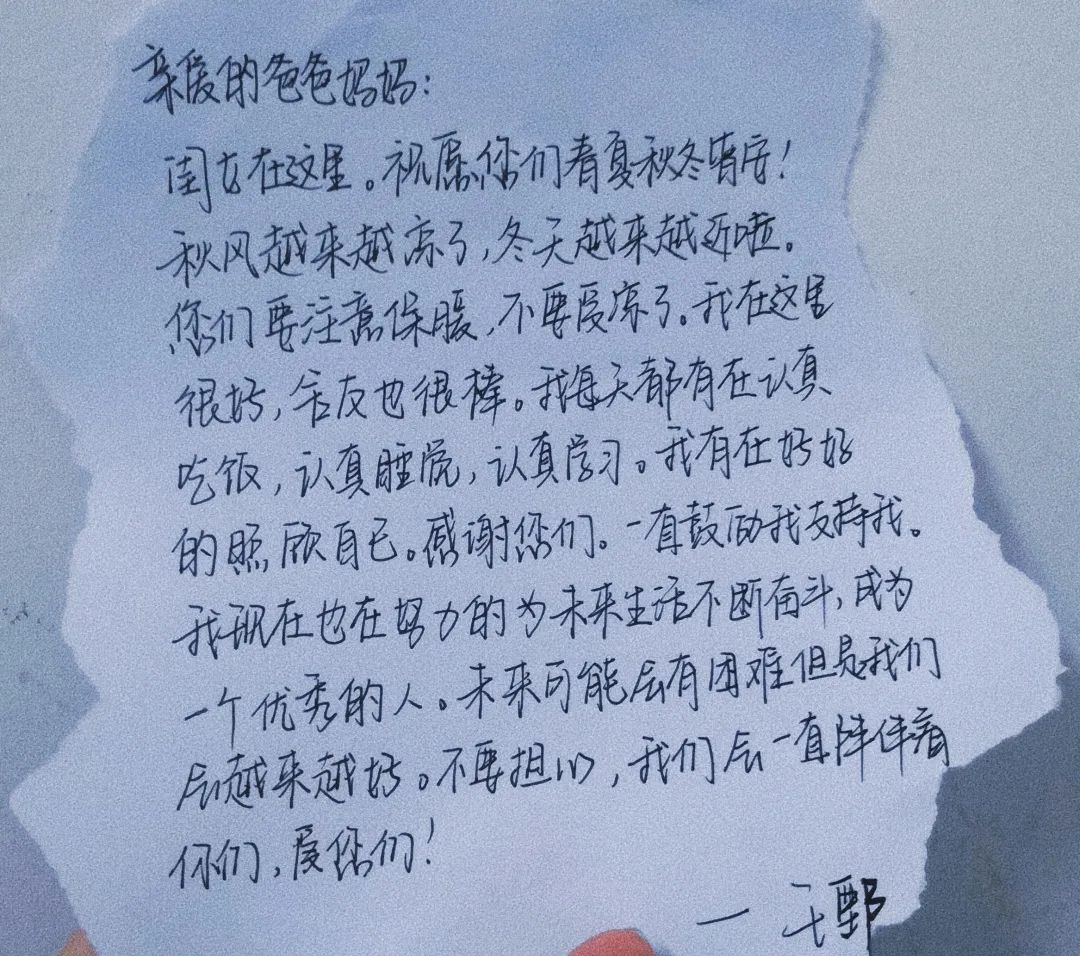 亲爱的爸爸妈妈:
闺女在这里。祝愿您们春夏秋冬皆安!
秋风越来越凉了,冬天越来越近啦。
您们要注意保暖,不要受凉了。我在这里
很好,舍友也很棒。我每天都有在认真
吃饭,认真睡觉,认真学习。我有在好好
的照顾自己。感谢您们。一直鼓励我支持我。
我现在也在努力的为未来生活不断奋斗,成为
一个优秀的人。未来可能会有困难但是我们
会越来越好。不要担心,我们会一直陪伴着
你们,爱您们!
— 王鄄